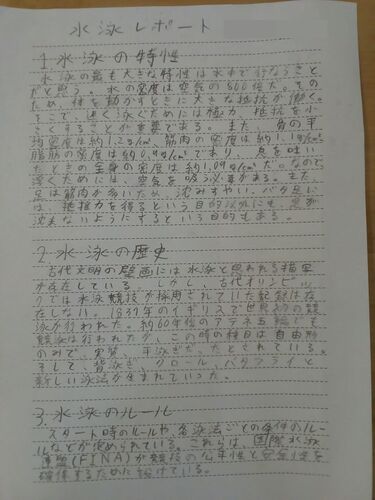 水泳レポート
1.水泳の特性
水泳の最も大きな特性は水中で行なうこと
だと思う。水の密度は空気の800倍だ。その
ため、体を動かすときに大きな抵抗が働く。
そこで、速く泳ぐためには極力、抵抗を小
さくすることが重要である。また、骨の平
均密度は約1.2g/cm³、筋肉の密度は約1.1g/cm³
脂肪の密度は約0.9g/cm³であり、息を吐い
たときの全身の密度は約1.04g/cm³だ。なので
浮くためには、空気を吸う必要がある。また、
足は筋肉が多いため、沈みすやい。バタ足に
は、推進力を得るという目的以外にも、足が
沈まないようにするという目的もある。
2.水泳の歴史
古代文明の壁画には水泳と思われる描写
が存在している。しかし、古代オリンピッ
クでは水泳競技が採用されていた記録は存
在しない。1837年のイギリスで世界初の競
泳が行われた。約60年後のアテネ五輪でも
競泳は行われたが、この時の種目は自由形
のみで、実質、平泳ぎだったとされている。
そして、背泳ぎ、クロール、バタフライと
新しい泳法が生まれていった。
3.水泳のルール
スタート時のルールや各泳法ごとの条件のルー
ルなどが定められている。これらは、国際水泳
連盟(FINA)が競技の公平性と安全性を
確保するために設けている。